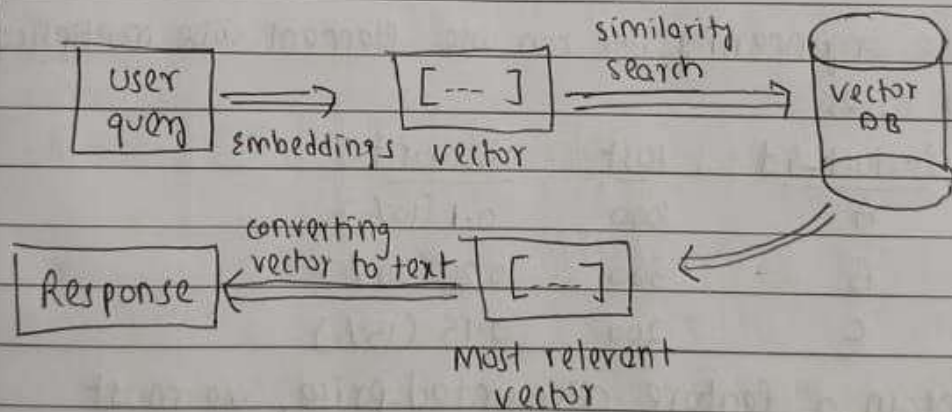 user
query
Embeddings
[--- ]
vector
similarity
search
vector
DB
Most relevant
vector
[---]
converting
vector to text
Response